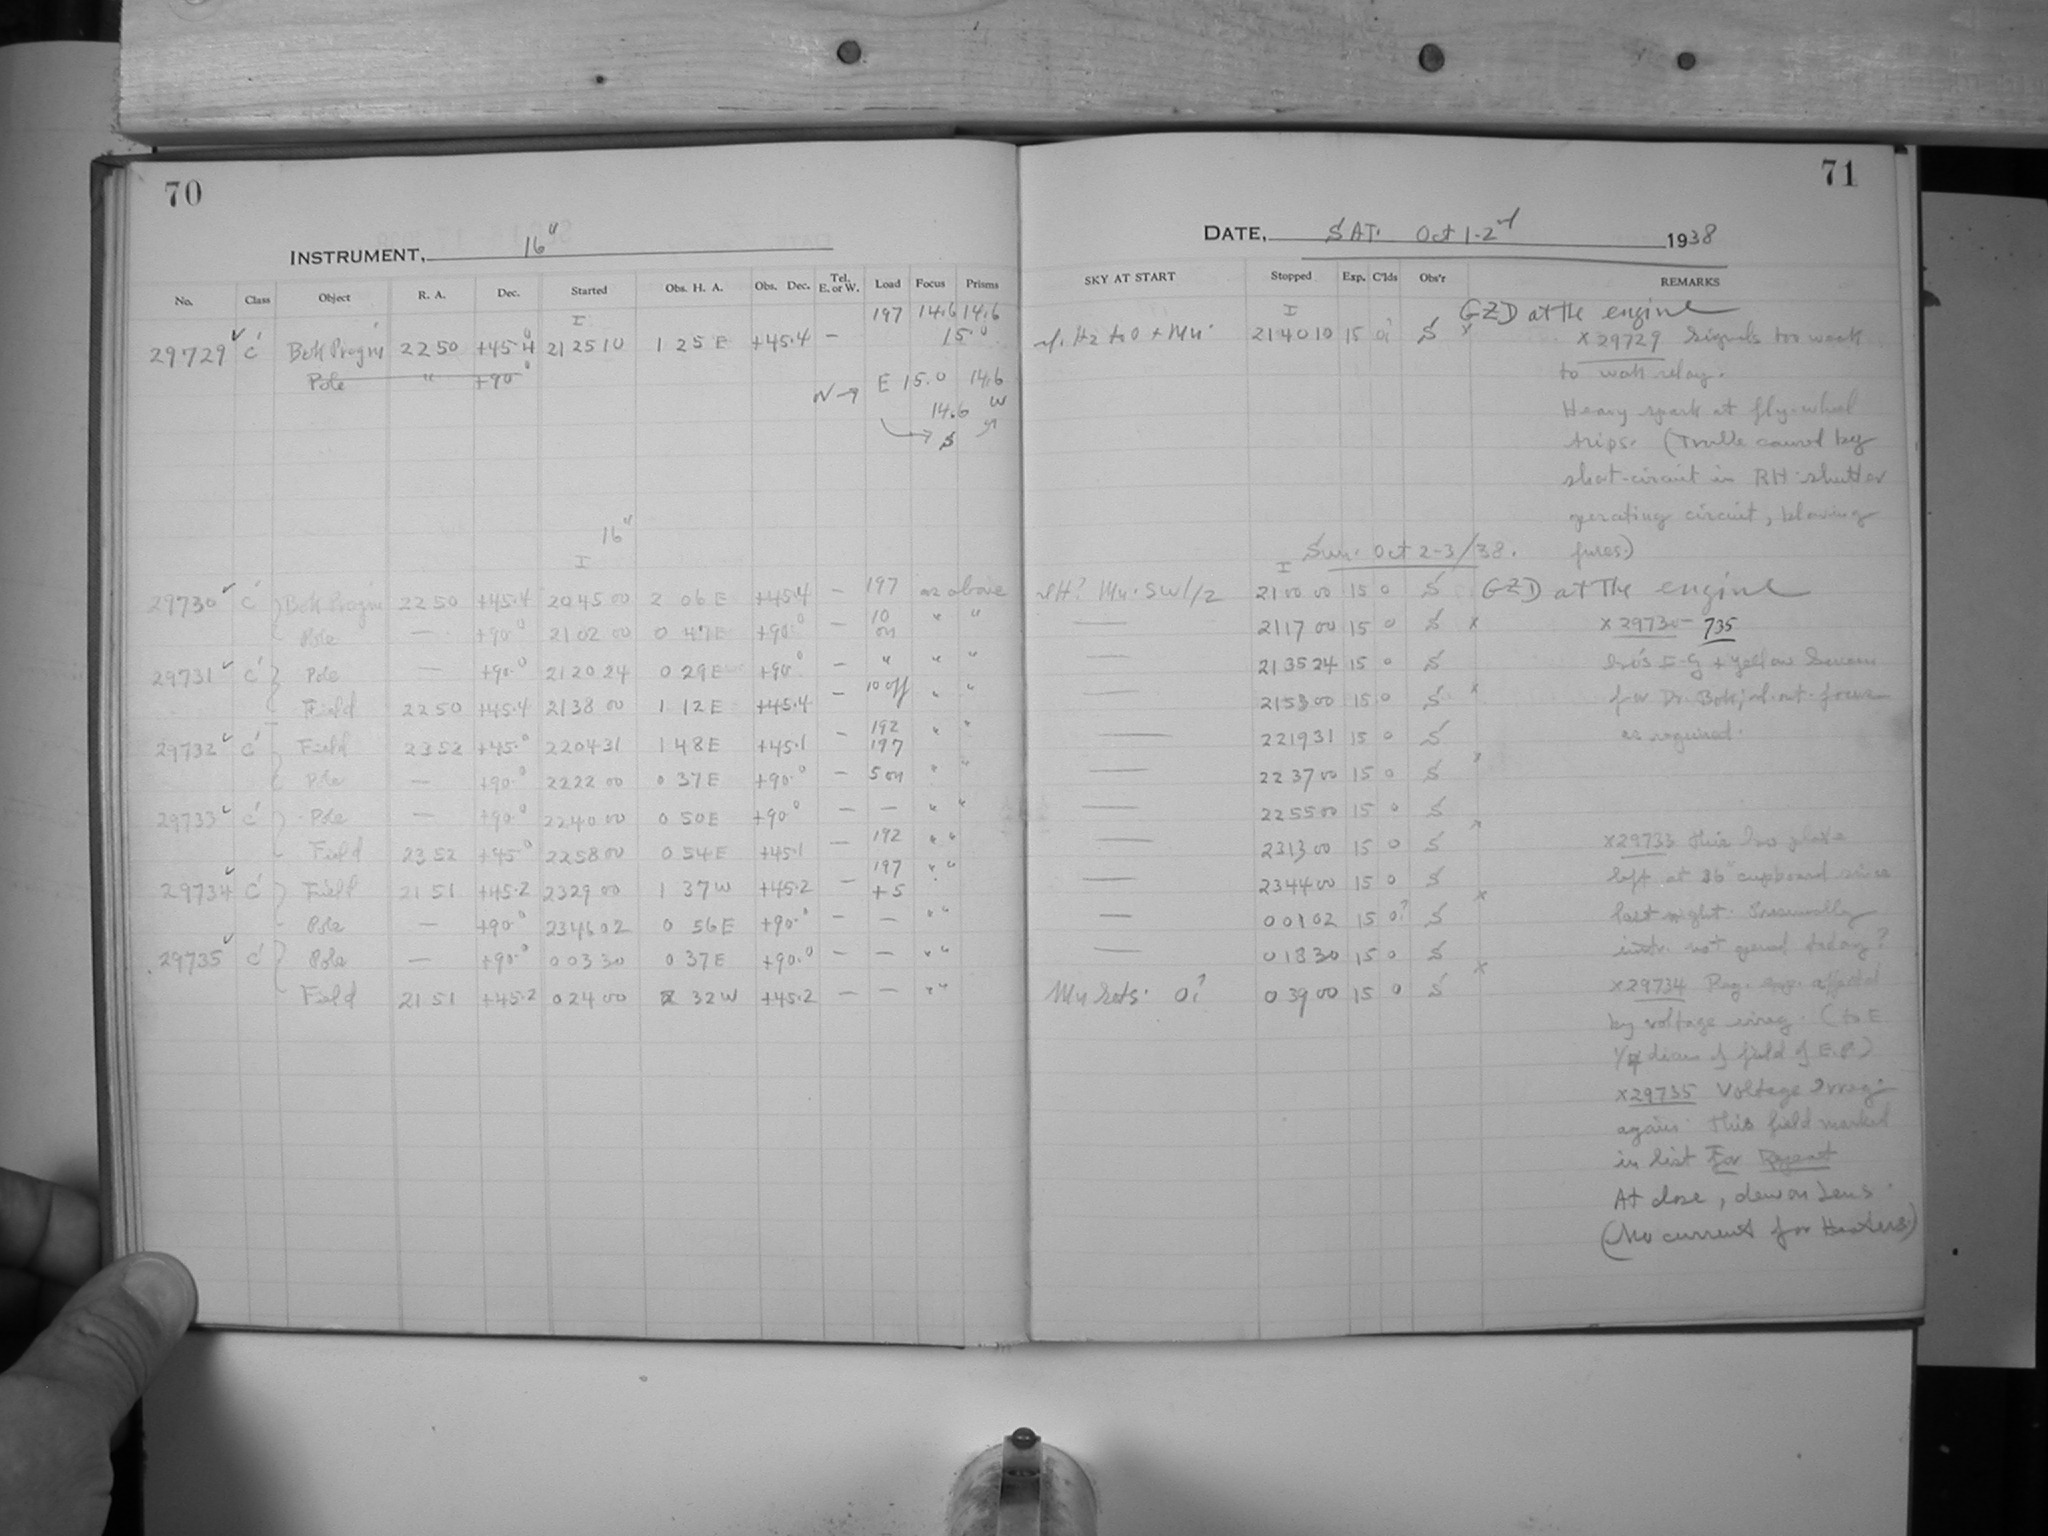 70
INSTRUMENT, 16"
No. Class Object R. A. Dec. Started Obs. H. A. Obs. Dec. Tel. E. or W. Load Focus Prisms
I 197 14.6 14.6
29729 C' Bok Progm 22 50 +45.4 21 25 10 1 25 E +45.4 — 15.0
Pole " +90°
N → E 15.0 14.6 W
14.6
S
16"
I
29730 C' Bok Progm 22 50 +45.4 20 45 00 2 06 E +45.4 — 197 as above
Pole — +90.0 21 02 00 0 47 E +90.0 — 10 on " "
29731 C' Pole — +90.0 21 20 24 0 29 E +90.0 — " " "
Field 22 50 +45.4 21 38 00 1 12 E +45.4 — 10 off " "
29732 C' Field 23 52 +45.0 22 04 31 1 48 E +45.1 — 192 197 " "
Pole — +90.0 22 22 00 0 37 E +90.0 — 5 on " "
29733 C' Pole — +90.0 22 40 00 0 50 E +90.0 — — " "
Field 23 52 +45.0 22 58 00 0 54 E +45.1 — 192 " "
29734 C' Field 21 51 +45.2 23 29 00 1 37 W +45.2 — 197 +5 " "
Pole — +90.0 23 46 02 0 56 E +90.0 — — " "
29735 C' Pole — +90.0 0 03 30 0 37 E +90.0 — — " "
Field 21 51 +45.2 0 24 00 2 32 W +45.2 — — " "
71
DATE, SAT. Oct 1-2 1938
SKY AT START Stopped Exp. C'lds Obs'r REMARKS
I GZD at the engine
H2 to 0 + Mn. 21 40 10 15 0? S x
x 29729 Signals too weak
to work relay.
Heavy spark at fly-wheel
trips. (Trouble caused by
short-circuit in RH shutter
operating circuit, blowing
fuses.)
Sun. Oct 2-3/38.
I
H? Mn. SW 1/2 21 00 00 15 0 S GZD at the engine
— 21 17 00 15 0 S x x 29730-735
— 21 35 24 15 0 S Iso's I-G + yellow Screen
— 21 53 00 15 0 S x for Dr. Bok; out focus
— 22 19 31 15 0 S as required.
— 22 37 00 15 0 S x
— 22 55 00 15 0 S
— 23 13 00 15 0 S x x 29733 This Iso plate
— 23 44 00 15 0 S left at 16" cupboard since
— 0 01 02 15 0? S x last night. Presumably
— 0 18 30 15 0 S instr. not opened today?
Mn sets. 0? 0 39 00 15 0 S x x 29734 Reg. exp. affected
by voltage irreg. (to E
1/4 diam of field of E.P.)
x 29735 Voltage irreg.
again. This field marked
in list For Repeat
At close, dew on Lens.
(No current for Heaters.)